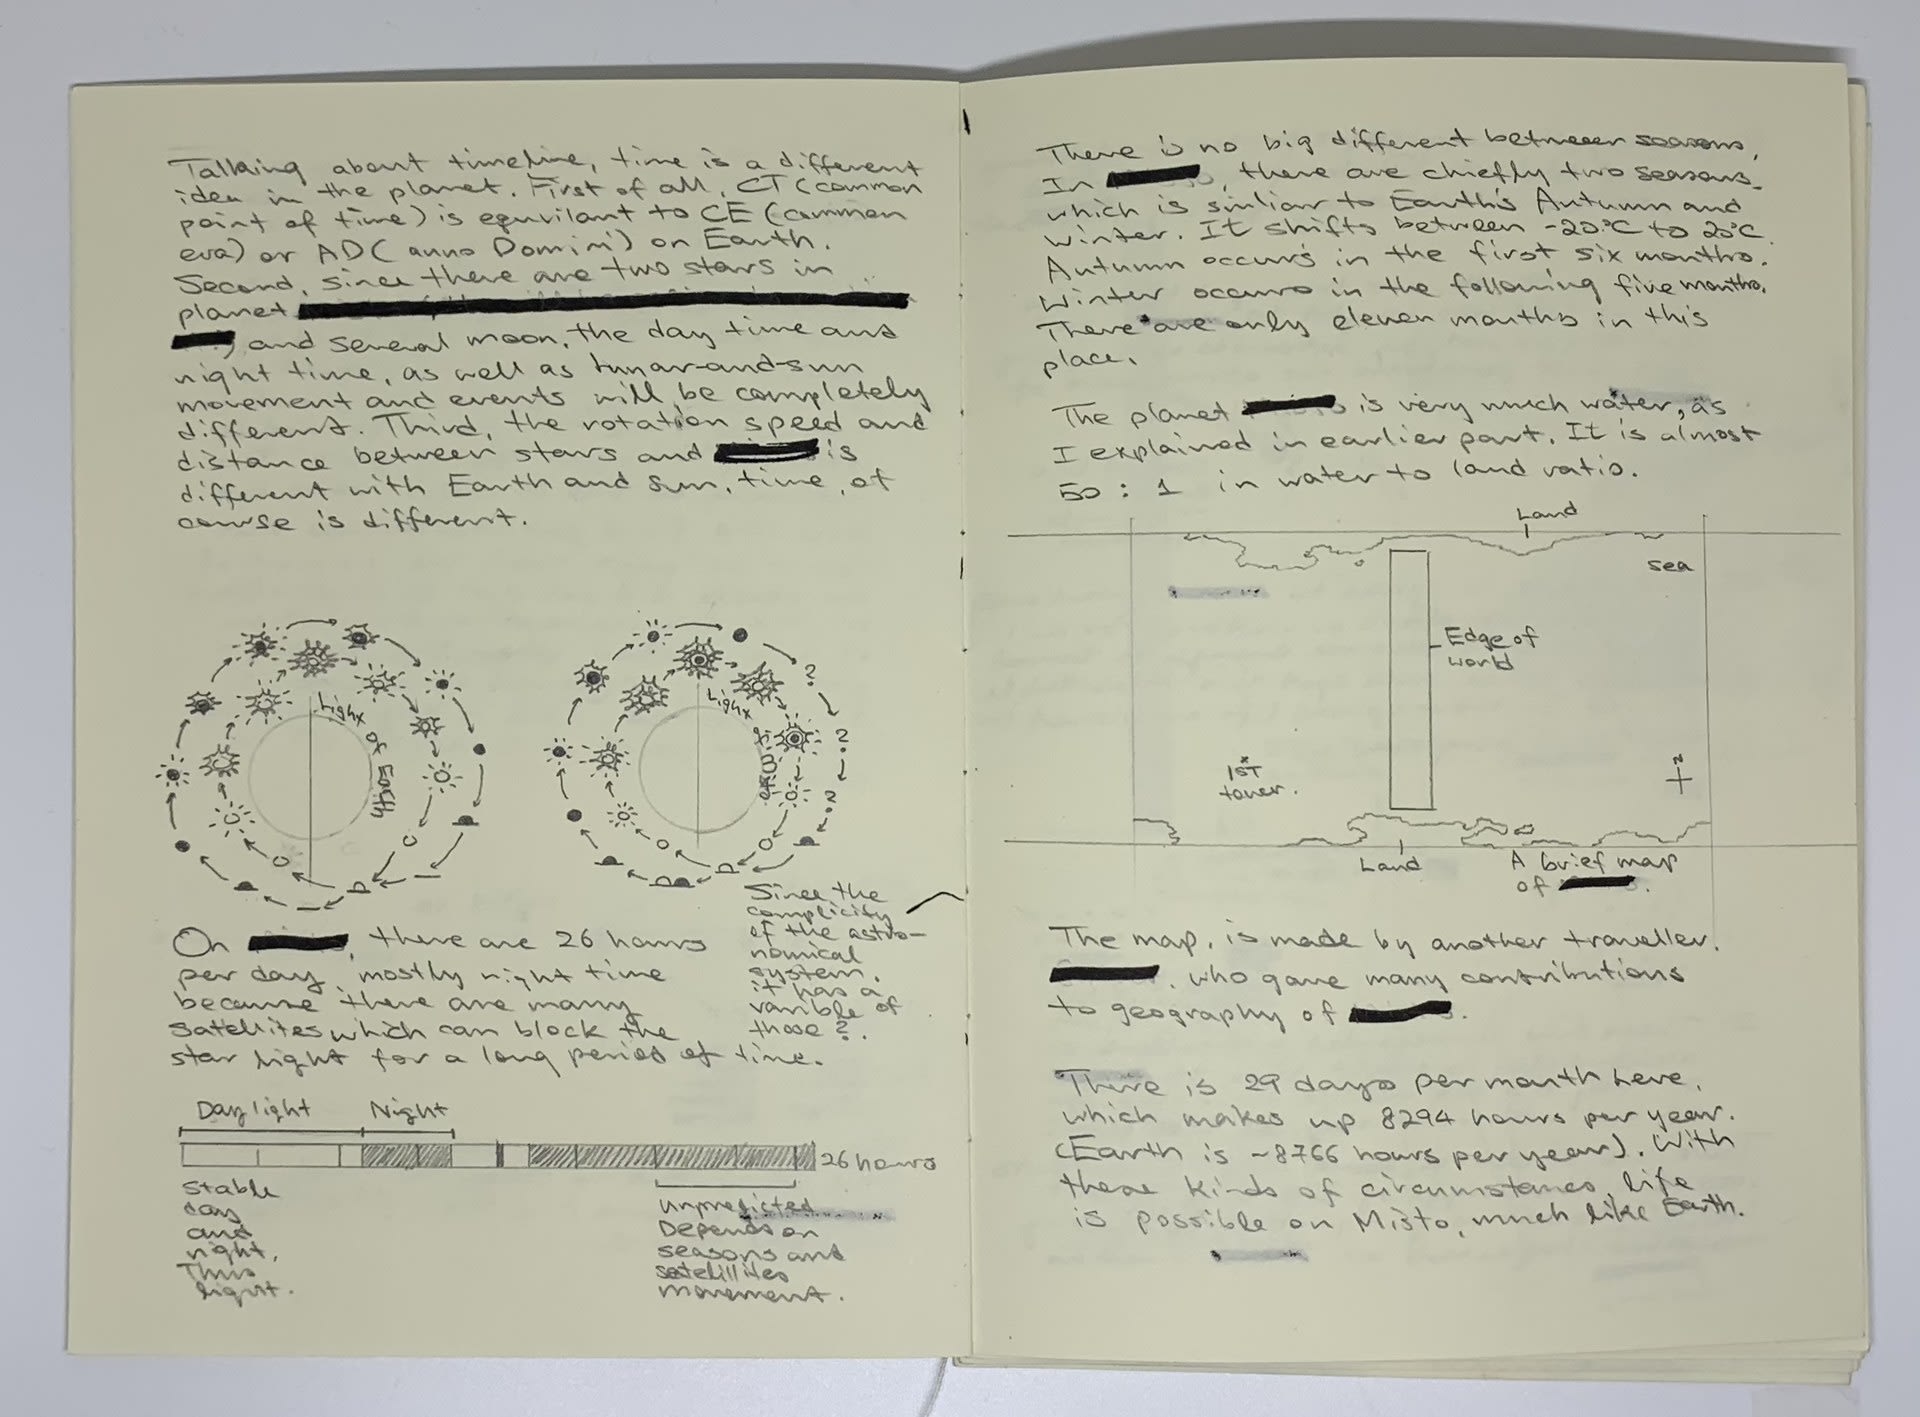 Talking about timeline, time is a different
idea in the planet. First of all, CT (common
point of time) is equvilant to CE (common
eva) or AD (anno Domini) on Earth.
Second, since there are two stars in
planet
, and several moon, the day time and
night time, as well as lunar-and-sun
movement and events will be completely
different. Third, the rotation speed and
distance between stars and is
different with Earth and sun, time, of
course is different.
Light of Earth
Light of
?
?
?
?
Since the
complicity
of the astro-
nomical
system,
it has a
varible of
those ?.
On , there are 26 hours
per day, mostly night time
because there are many
satellites which can block the
star light for a long period of time.
Daylight Night
26 hours
Stable
day
and
night,
Thus
light.
Unpredicted
Depends on
seasons and
satelillites
movement.
There is no big different betweeer seasons.
In , there are chiefly two seasons.
which is simliar to Earth's Autumn and
Winter. It shifts between -20°C to 20°C.
Autumn occurs in the first six months.
Winter occurs in the following five months.
There are only eleven months in this
place.
The planet is very much water, as
I explained in earlier part. It is almost
50 : 1 in water to land ratio.
Land
Sea
Edge of
world
1st
tower.
N
Land
A brief map
of .
The map, is made by another traveller.
, who gave many contributions
to geography of .
There is 29 days per month here,
which makes up 8294 hours per year.
(Earth is ~8766 hours per year). With
these kinds of circumstances, life
is possible on Misto, much like Earth.